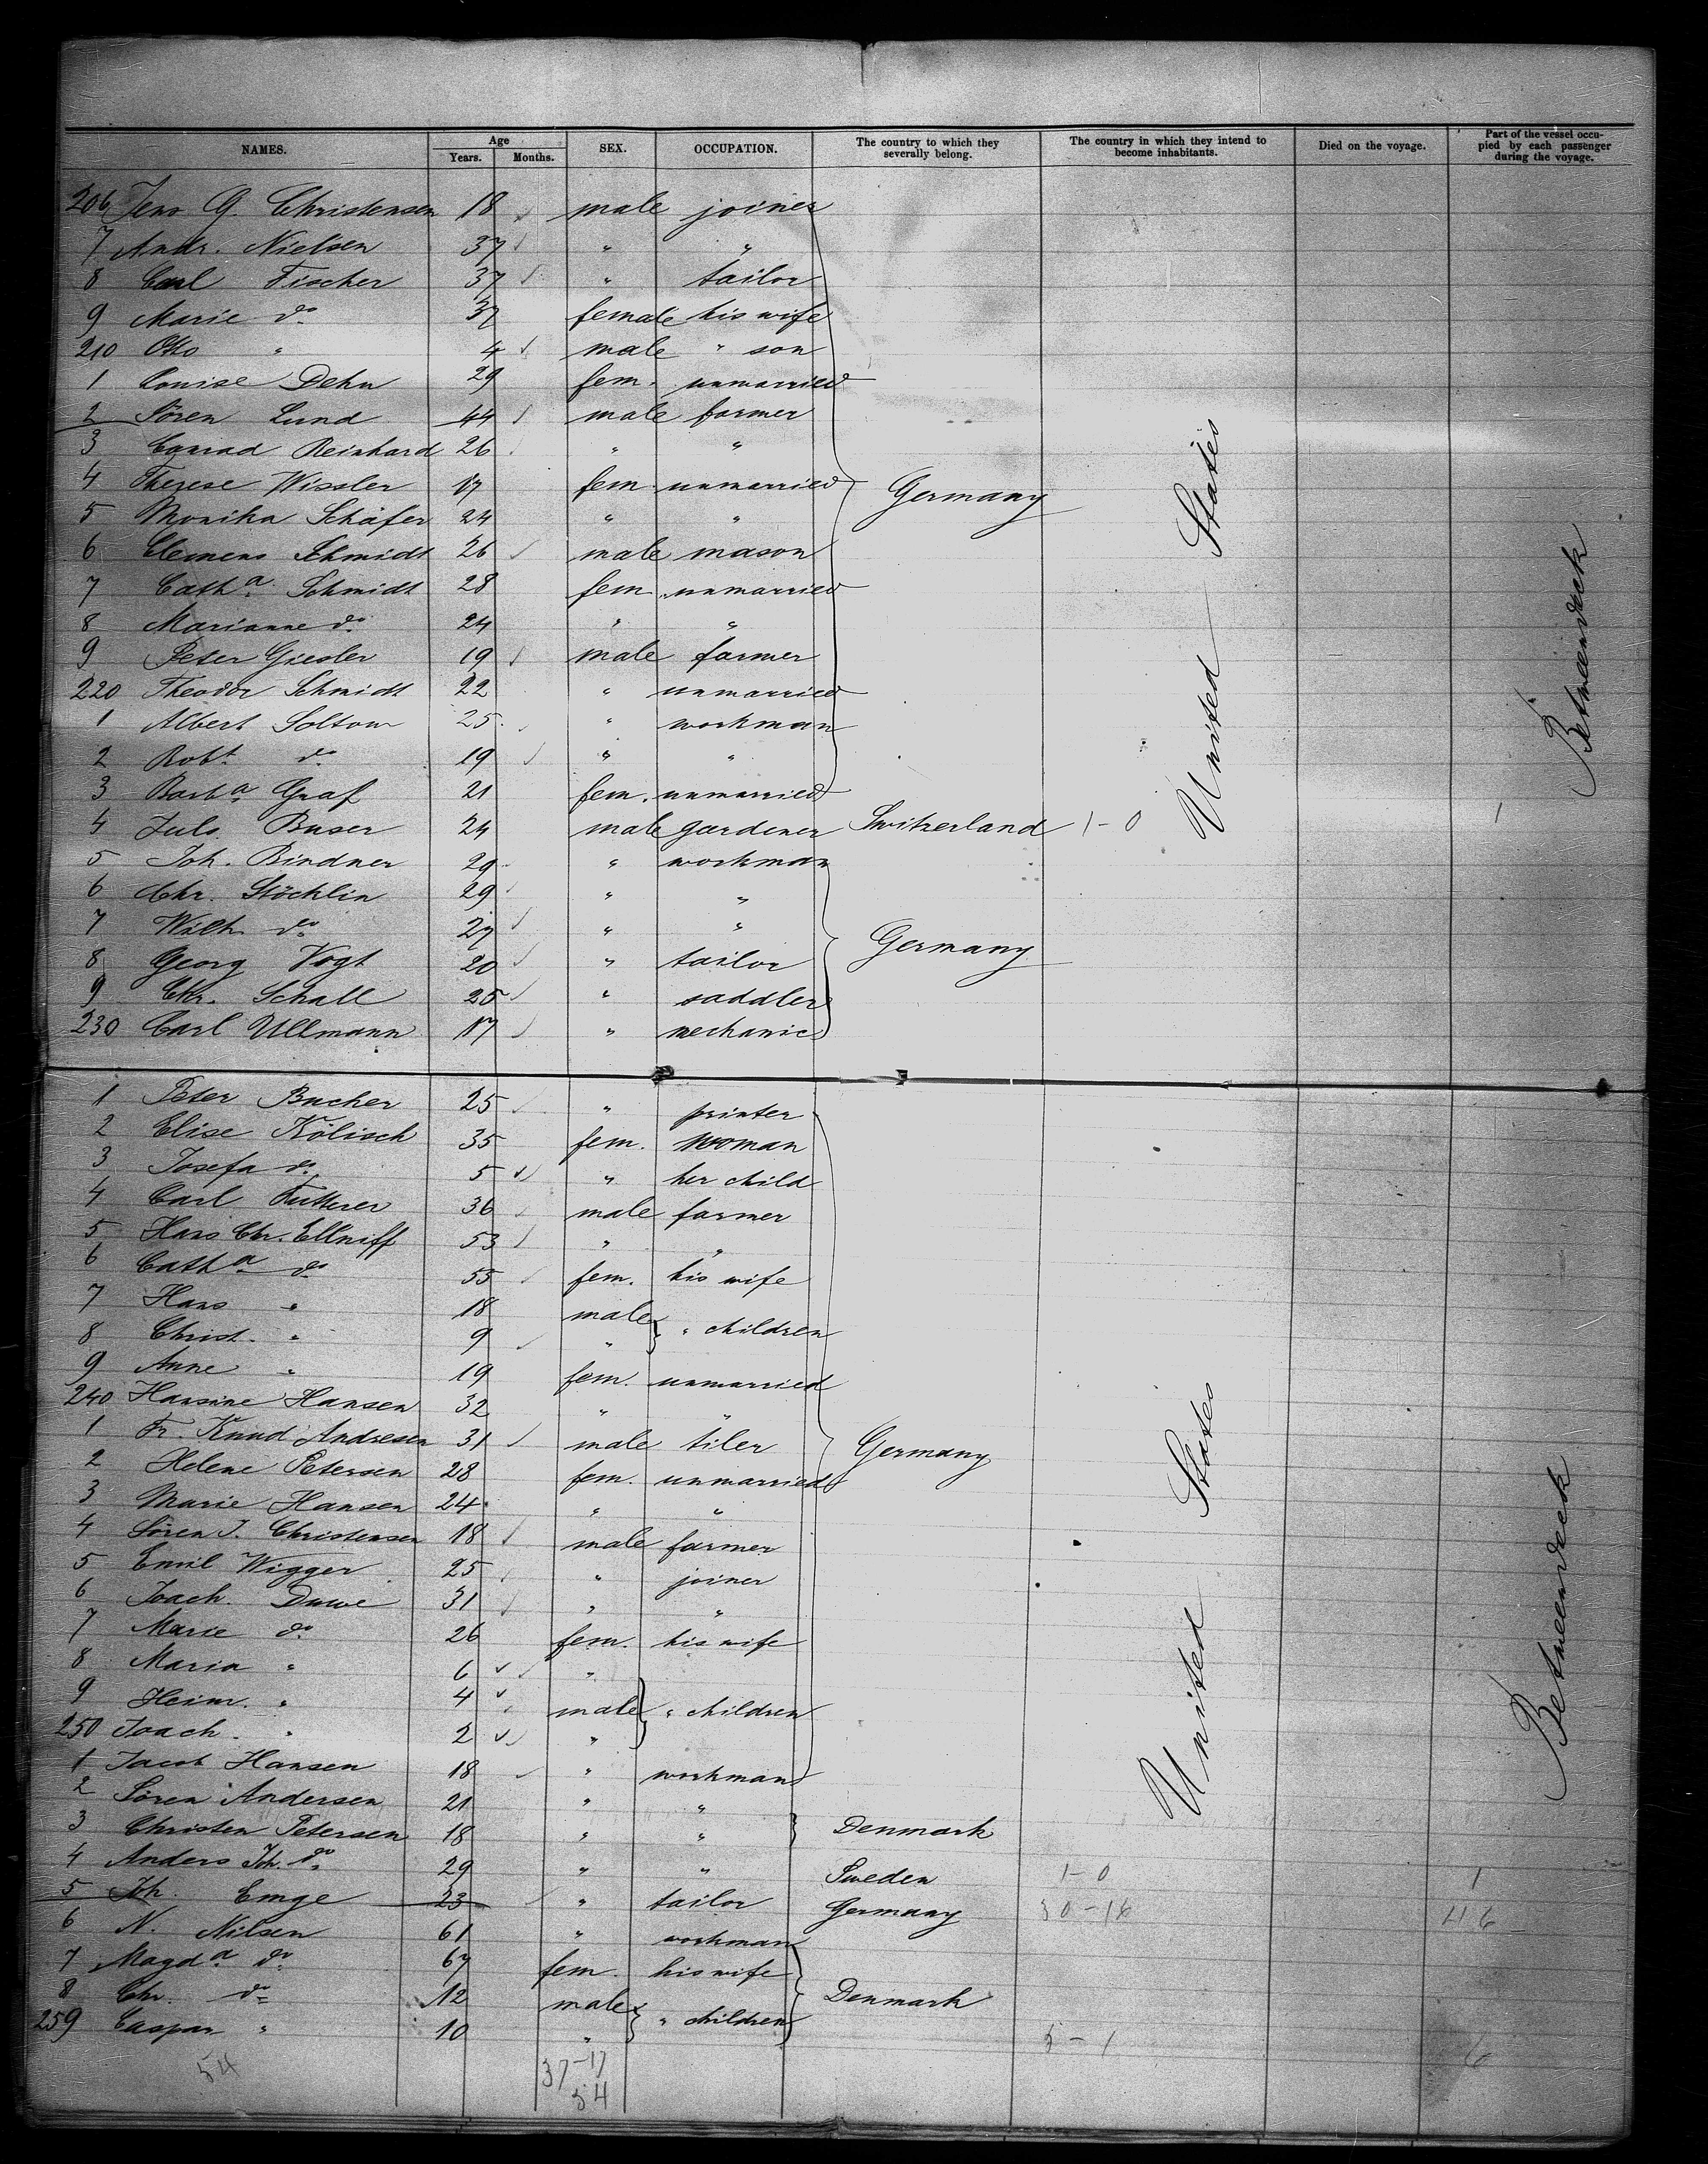 NAMES. Age Years. Months. SEX. OCCUPATION. The country to which they severally belong. The country in which they intend to become inhabitants. Died on the voyage. Part of the vessel occupied by each passenger during the voyage.
206 Jens G. Christensen 18 male joiner
7 Andr. Nielsen 37 " "
8 Carl Fischer 37 " tailor
9 Marie do 37 female his wife
210 Otto " 4 male " son
1 Louise Dehn 29 fem. unmarried
2 Sören Lund 44 male farmer
3 Conrad Reinhard 26 " "
4 Therese Wissler 17 fem. unmarried Germany
5 Monika Schäfer 24 " "
6 Clemens Schmidt 26 male mason
7 Catha. Schmidt 28 fem. unmarried
8 Marianne do 24 " "
9 Peter Giesler 19 male farmer
220 Theodor Schmidt 22 " unmarried
1 Albert Soltow 25 " workman
2 Robt. do 19 " "
3 Barba. Graf 21 fem. unmarried
4 Juls. Buser 24 male gardener Switzerland 1-0 United States 1 Betweendeck
5 Joh. Bindner 29 " workman
6 Chr. Stöchlin 29 " "
7 Wilh. do 27 " "
8 Georg Vogt 20 " tailor Germany
9 Chr. Schall 25 " saddler
230 Carl Ullmann 17 " mechanic
1 Peter Bucher 25 " printer
2 Elise Kölisch 35 fem. woman
3 Josefa do 5 " her child
4 Carl Futterer 36 male farmer
5 Hans Chr. Ellniff 53 " "
6 Catha. do 55 fem. his wife
7 Hans " 18 male " children
8 Christ. " 9 "
9 Anne " 19 fem. unmarried
240 Hansine Hansen 32 " "
1 Fr. Knud Andresen 31 male tiler Germany
2 Helene Petersen 28 fem. unmarried
3 Marie Hansen 24 " "
4 Sören J. Christensen 18 male farmer
5 Emil Wigger 25 " joiner
6 Joach. Duwe 31 " "
7 Marie do 26 fem. his wife United States Betweendeck
8 Maria " 6 "
9 Heinr. " 4 male " children
250 Joach. " 2 "
1 Jacob Hansen 18 " workman
2 Sören Andersen 21 " "
3 Christen Petersen 18 " " Denmark
4 Anders Joh. do 29 " " Sweden 1-0 1
5 Joh. Emge 23 " tailor Germany 30-18 46
6 N. Nilsen 61 " workman
7 Magda. do 67 fem. his wife
8 Chr. do 12 male " children Denmark
259 Caspar " 10 " 5-1 6
54 37-17
54